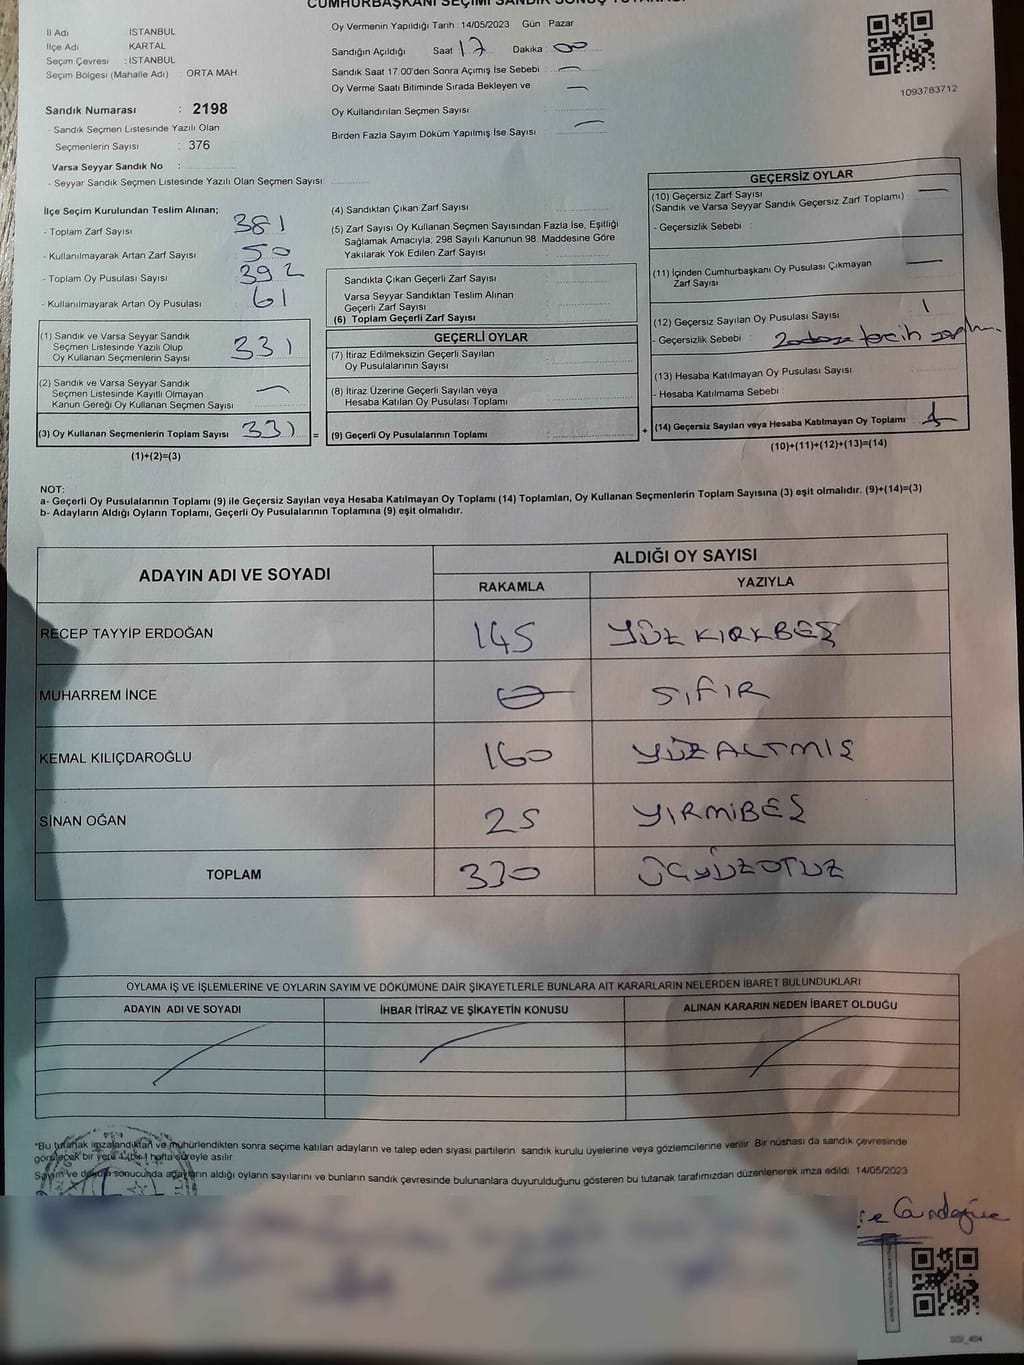 CUMHURBAŞKANI SEÇİMİ SANDIK SONUÇ TUTANAĞI
İl Adı İSTANBUL
İlçe Adı KARTAL
Seçim Çevresi : İSTANBUL
Seçim Bölgesi (Mahalle Adı) : ORTA MAH.
Sandık Numarası : 2198
- Sandık Seçmen Listesinde Yazılı Olan
Seçmenlerin Sayısı : 376
Varsa Seyyar Sandık No :
- Seyyar Sandık Seçmen Listesinde Yazılı Olan Seçmen Sayısı:
Oy Vermenin Yapıldığı Tarih : 14/05/2023 Gün : Pazar
Sandığın Açıldığı Saat 17 Dakika 00
Sandık Saat 17.00'den Sonra Açılmış İse Sebebi : —
Oy Verme Saati Bitiminde Sırada Bekleyen ve —
Oy Kullandırılan Seçmen Sayısı :
Birden Fazla Sayım Döküm Yapılmış İse Sayısı : —
1093783712
İlçe Seçim Kurulundan Teslim Alınan;
- Toplam Zarf Sayısı 381
- Kullanılmayarak Artan Zarf Sayısı 50
- Toplam Oy Pusulası Sayısı 392
- Kullanılmayarak Artan Oy Pusulası 61
(1) Sandık ve Varsa Seyyar Sandık
Seçmen Listesinde Yazılı Olup
Oy Kullanan Seçmenlerin Sayısı 331
(2) Sandık ve Varsa Seyyar Sandık
Seçmen Listesinde Kayıtlı Olmayan
Kanun Gereği Oy Kullanan Seçmen Sayısı —
(3) Oy Kullanan Seçmenlerin Toplam Sayısı 331 =
(1)+(2)=(3)
(4) Sandıktan Çıkan Zarf Sayısı :
(5) Zarf Sayısı Oy Kullanan Seçmen Sayısından Fazla İse, Eşitliği
Sağlamak Amacıyla; 298 Sayılı Kanunun 98. Maddesine Göre
Yakılarak Yok Edilen Zarf Sayısı :
Sandıkta Çıkan Geçerli Zarf Sayısı :
Varsa Seyyar Sandıktan Teslim Alınan
Geçerli Zarf Sayısı :
(6) Toplam Geçerli Zarf Sayısı :
GEÇERLİ OYLAR
(7) İtiraz Edilmeksizin Geçerli Sayılan
Oy Pusulalarının Sayısı :
(8) İtiraz Üzerine Geçerli Sayılan veya
Hesaba Katılan Oy Pusulası Toplamı :
(9) Geçerli Oy Pusulalarının Toplamı : +
GEÇERSİZ OYLAR
(10) Geçersiz Zarf Sayısı —
(Sandık ve Varsa Seyyar Sandık Geçersiz Zarf Toplamı) :
- Geçersizlik Sebebi :
(11) İçinden Cumhurbaşkanı Oy Pusulası Çıkmayan —
Zarf Sayısı
(12) Geçersiz Sayılan Oy Pusulası Sayısı : 1
- Geçersizlik Sebebi : tercih
(13) Hesaba Katılmayan Oy Pusulası Sayısı :
- Hesaba Katılmama Sebebi :
(14) Geçersiz Sayılan veya Hesaba Katılmayan Oy Toplamı : 1
(10)+(11)+(12)+(13)=(14)
NOT:
a- Geçerli Oy Pusulalarının Toplamı (9) ile Geçersiz Sayılan veya Hesaba Katılmayan Oy Toplamı (14) Toplamları, Oy Kullanan Seçmenlerin Toplam Sayısına (3) eşit olmalıdır. (9)+(14)=(3)
b- Adayların Aldığı Oyların Toplamı, Geçerli Oy Pusulalarının Toplamına (9) eşit olmalıdır.
ADAYIN ADI VE SOYADI
ALDIĞI OY SAYISI
RAKAMLA YAZIYLA
RECEP TAYYİP ERDOĞAN 145 YÜZ KIRKBEŞ
MUHARREM İNCE 0 SIFIR
KEMAL KILIÇDAROĞLU 160 YÜZALTMIŞ
SİNAN OĞAN 25 YİRMİBEŞ
TOPLAM 330 ÜÇYÜZOTUZ
OYLAMA İŞ VE İŞLEMLERİNE VE OYLARIN SAYIM VE DÖKÜMÜNE DAİR ŞİKAYETLERLE BUNLARA AİT KARARLARIN NELERDEN İBARET BULUNDUKLARI
ADAYIN ADI VE SOYADI İHBAR İTİRAZ VE ŞİKAYETİN KONUSU ALINAN KARARIN NEDEN İBARET OLDUĞU
"Bu tutanak imzalandıktan ve mühürlendikten sonra seçime katılan adayların ve talep eden siyasi partilerin sandık kurulu üyelerine veya gözlemcilerine verilir. Bir nüshası da sandık çevresinde
görülecek bir yere 1 (bir) hafta süreyle asılır.
Sayım ve döküm sonucunda adayların aldığı oyların sayılarını ve bunların sandık çevresinde bulunanlara duyurulduğunu gösteren bu tutanak tarafımızdan düzenlenerek imza edildi. 14/05/2023